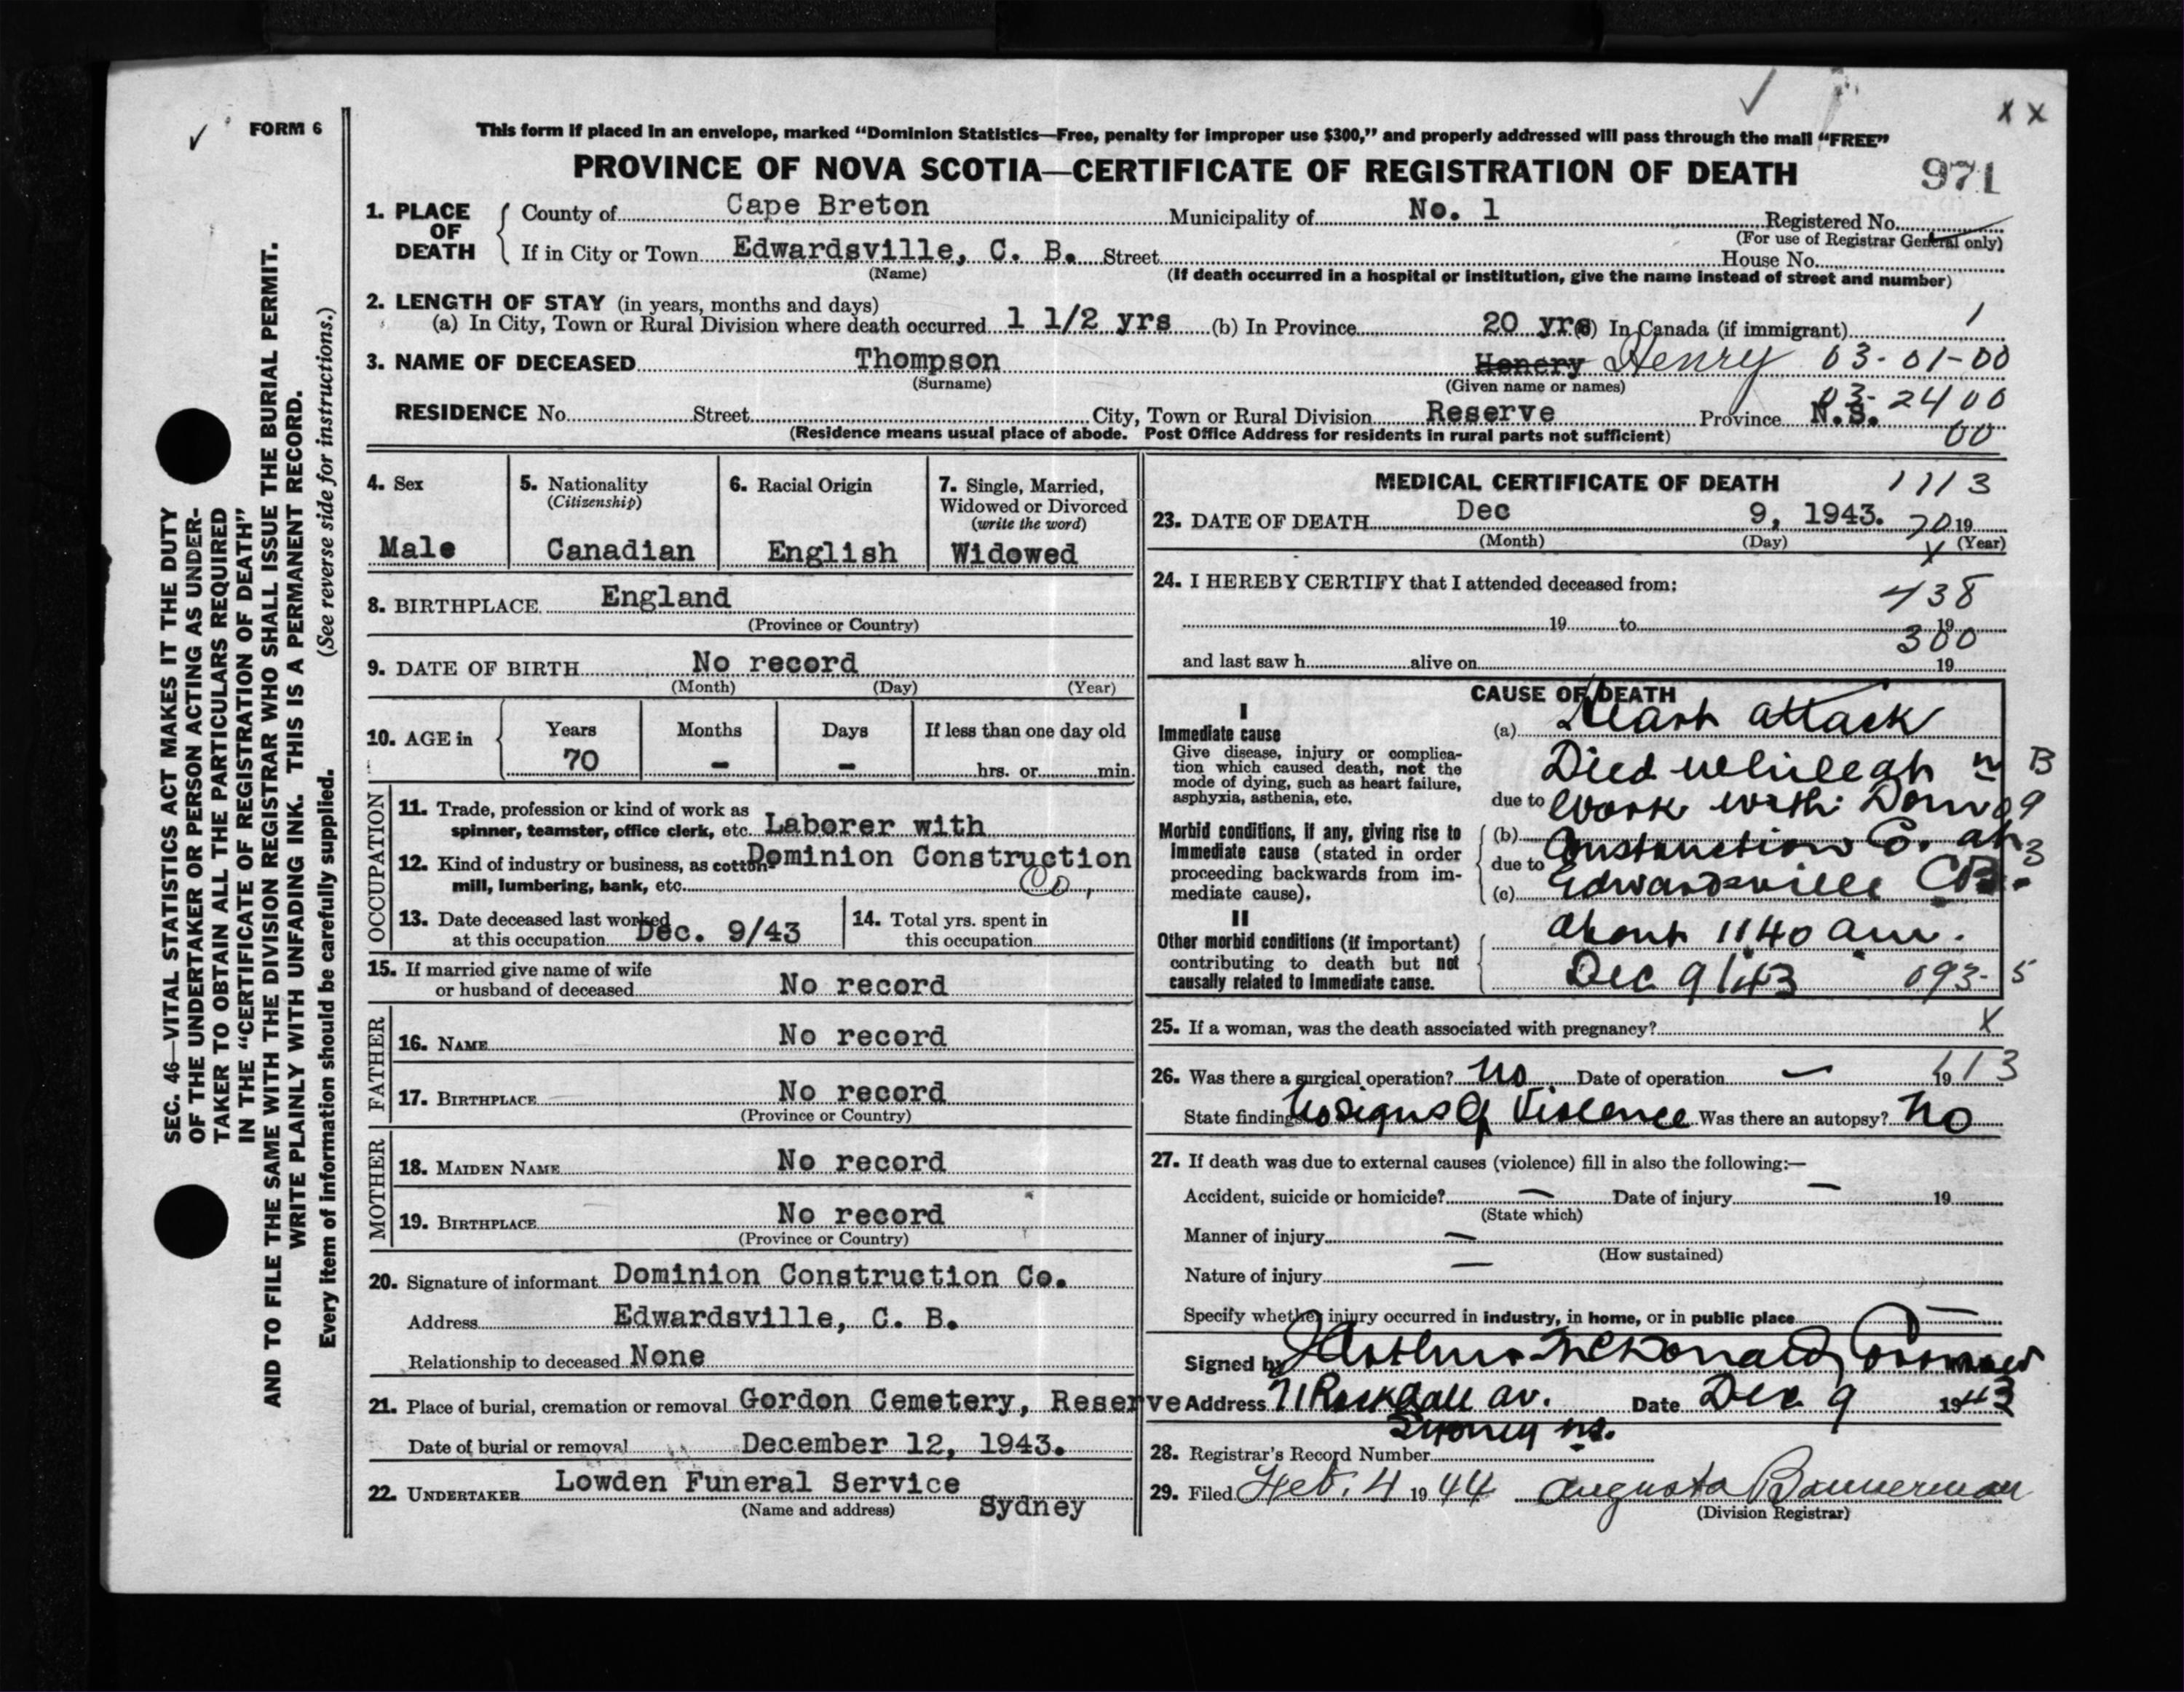 FORM 6
This form if placed in an envelope, marked “Dominion Statistics—Free, penalty for improper use $300,” and properly addressed will pass through the mail “FREE”
PROVINCE OF NOVA SCOTIA—CERTIFICATE OF REGISTRATION OF DEATH
971
1. PLACE OF DEATH
County of Cape Breton Municipality of No. 1 Registered No.
(For use of Registrar General only)
If in City or Town Edwardsville, C. B. Street House No.
(Name) (If death occurred in a hospital or institution, give the name instead of street and number)
2. LENGTH OF STAY (in years, months and days)
(a) In City, Town or Rural Division where death occurred 1 1/2 yrs (b) In Province 20 yrs (c) In Canada (if immigrant)
3. NAME OF DECEASED Thompson Henery Henry 03-01-00
(Surname) (Given name or names)
03-2400
RESIDENCE No. Street City, Town or Rural Division Reserve Province N.S.
(Residence means usual place of abode. Post Office Address for residents in rural parts not sufficient) 00
4. Sex
Male
5. Nationality
(Citizenship)
Canadian
6. Racial Origin
English
7. Single, Married, Widowed or Divorced
(write the word)
Widowed
8. BIRTHPLACE England
(Province or Country)
9. DATE OF BIRTH No record
(Month) (Day) (Year)
10. AGE in Years Months Days If less than one day old
70 - - hrs. or min.
OCCUPATION
11. Trade, profession or kind of work as
spinner, teamster, office clerk, etc. Laborer with
12. Kind of industry or business, as cotton Dominion Construction
mill, lumbering, bank, etc. Co,
13. Date deceased last worked
at this occupation Dec. 9/43
14. Total yrs. spent in
this occupation
15. If married give name of wife
or husband of deceased No record
FATHER
16. NAME No record
17. BIRTHPLACE No record
(Province or Country)
MOTHER
18. MAIDEN NAME No record
19. BIRTHPLACE No record
(Province or Country)
20. Signature of informant Dominion Construction Co.
Address Edwardsville, C. B.
Relationship to deceased None
21. Place of burial, cremation or removal Gordon Cemetery, Reserve
Date of burial or removal December 12, 1943.
22. UNDERTAKER Lowden Funeral Service
(Name and address) Sydney
MEDICAL CERTIFICATE OF DEATH 1113
23. DATE OF DEATH Dec 9, 1943. 70 19
(Month) (Day) (Year)
X
24. I HEREBY CERTIFY that I attended deceased from:
438
19 to 19
300
and last saw h alive on 19
CAUSE OF DEATH
I
Immediate cause
Give disease, injury or complica-
tion which caused death, not the
mode of dying, such as heart failure,
asphyxia, asthenia, etc.
(a) Heart attack
Died while at
due to work with Dom
Morbid conditions, if any, giving rise to
immediate cause (stated in order
proceeding backwards from im-
mediate cause).
(b) Construction Co. at
due to
(c) Edwardsville CB.
II
Other morbid conditions (if important)
contributing to death but not
causally related to immediate cause.
about 1140 am.
Dec 9/43 093-5
25. If a woman, was the death associated with pregnancy? X
26. Was there a surgical operation? No Date of operation — 19 113
State findings No signs of Violence Was there an autopsy? No
27. If death was due to external causes (violence) fill in also the following:—
Accident, suicide or homicide? — Date of injury — 19
(State which)
Manner of injury —
(How sustained)
Nature of injury —
Specify whether injury occurred in industry, in home, or in public place —
Signed by Arthur McDonald Coroner
Address 71 Rockdall av. Date Dec. 9 1943
Sydney NS.
28. Registrar's Record Number
29. Filed Feb. 4 1944 Augusta Bannerman
(Division Registrar)
SEC. 46—VITAL STATISTICS ACT MAKES IT THE DUTY
OF THE UNDERTAKER OR PERSON ACTING AS UNDER-
TAKER TO OBTAIN ALL THE PARTICULARS REQUIRED
IN THE “CERTIFICATE OF REGISTRATION OF DEATH”
AND TO FILE THE SAME WITH THE DIVISION REGISTRAR WHO SHALL ISSUE THE BURIAL PERMIT.
WRITE PLAINLY WITH UNFADING INK. THIS IS A PERMANENT RECORD.
Every item of information should be carefully supplied. (See reverse side for instructions.)